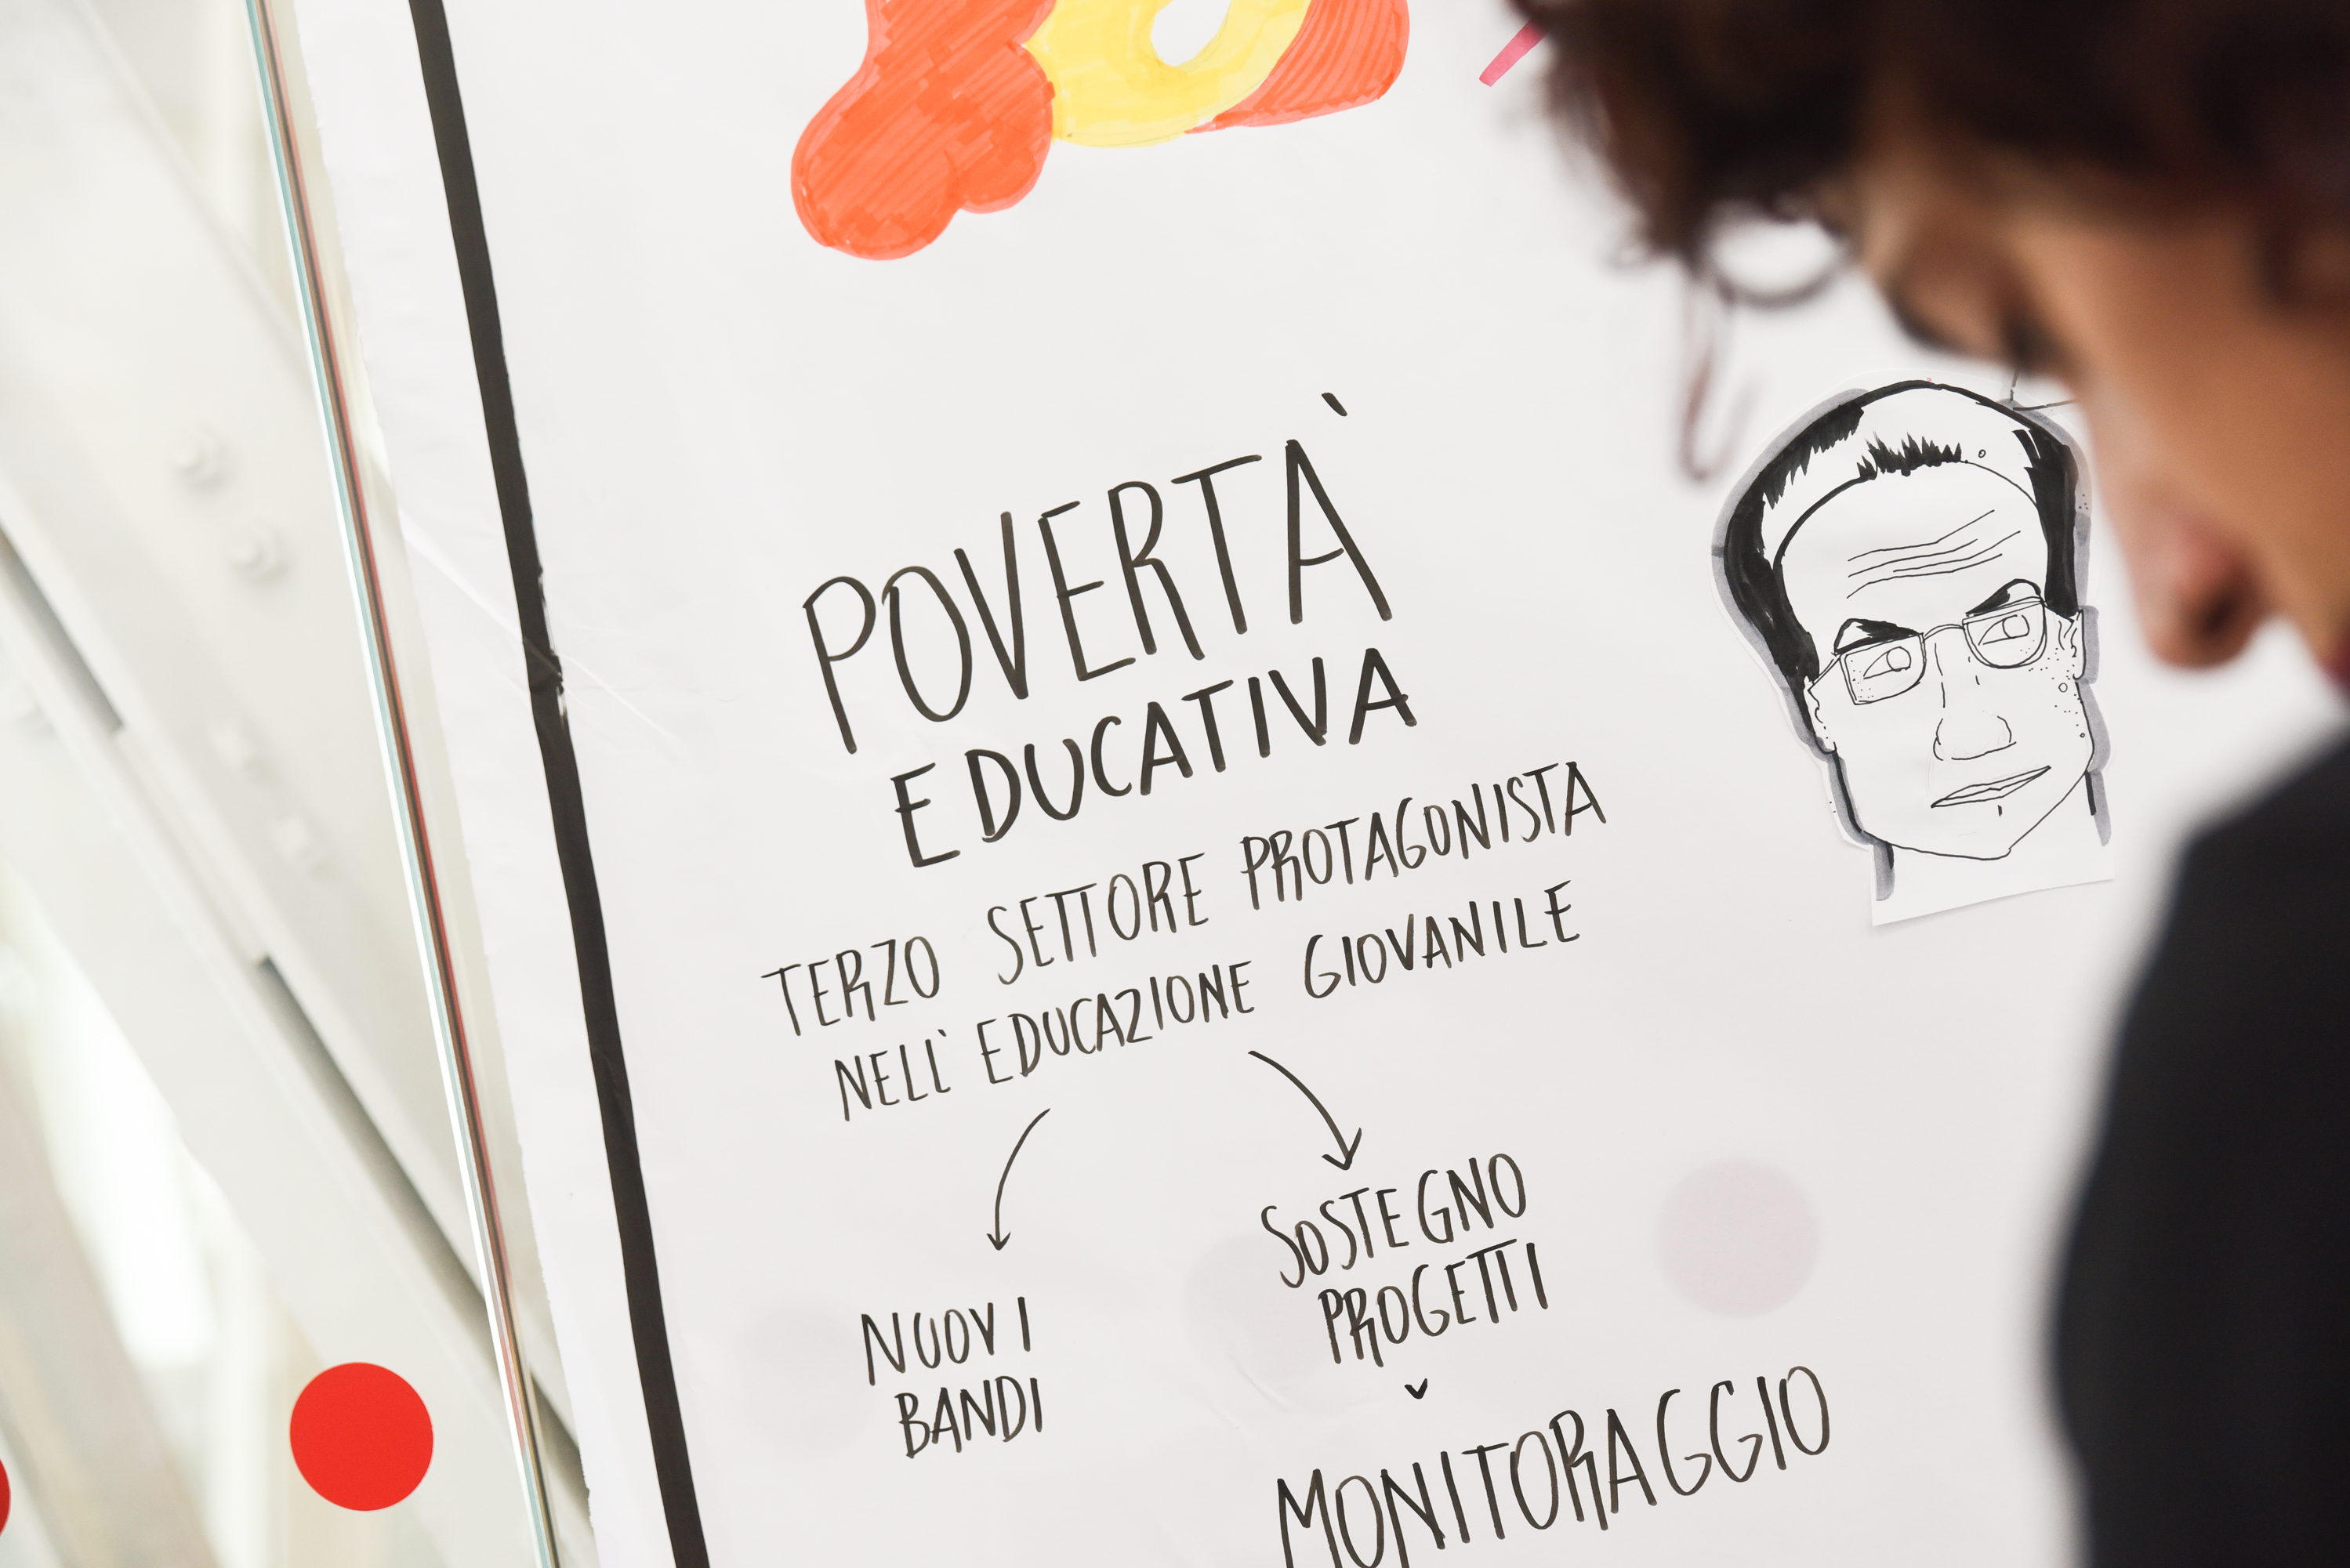 POVERTÀ
EDUCATIVA
TERZO SETTORE PROTAGONISTA
NELL' EDUCAZIONE GIOVANILE
NUOVI
BANDI
SOSTEGNO
PROGETTI
MONITORAGGIO